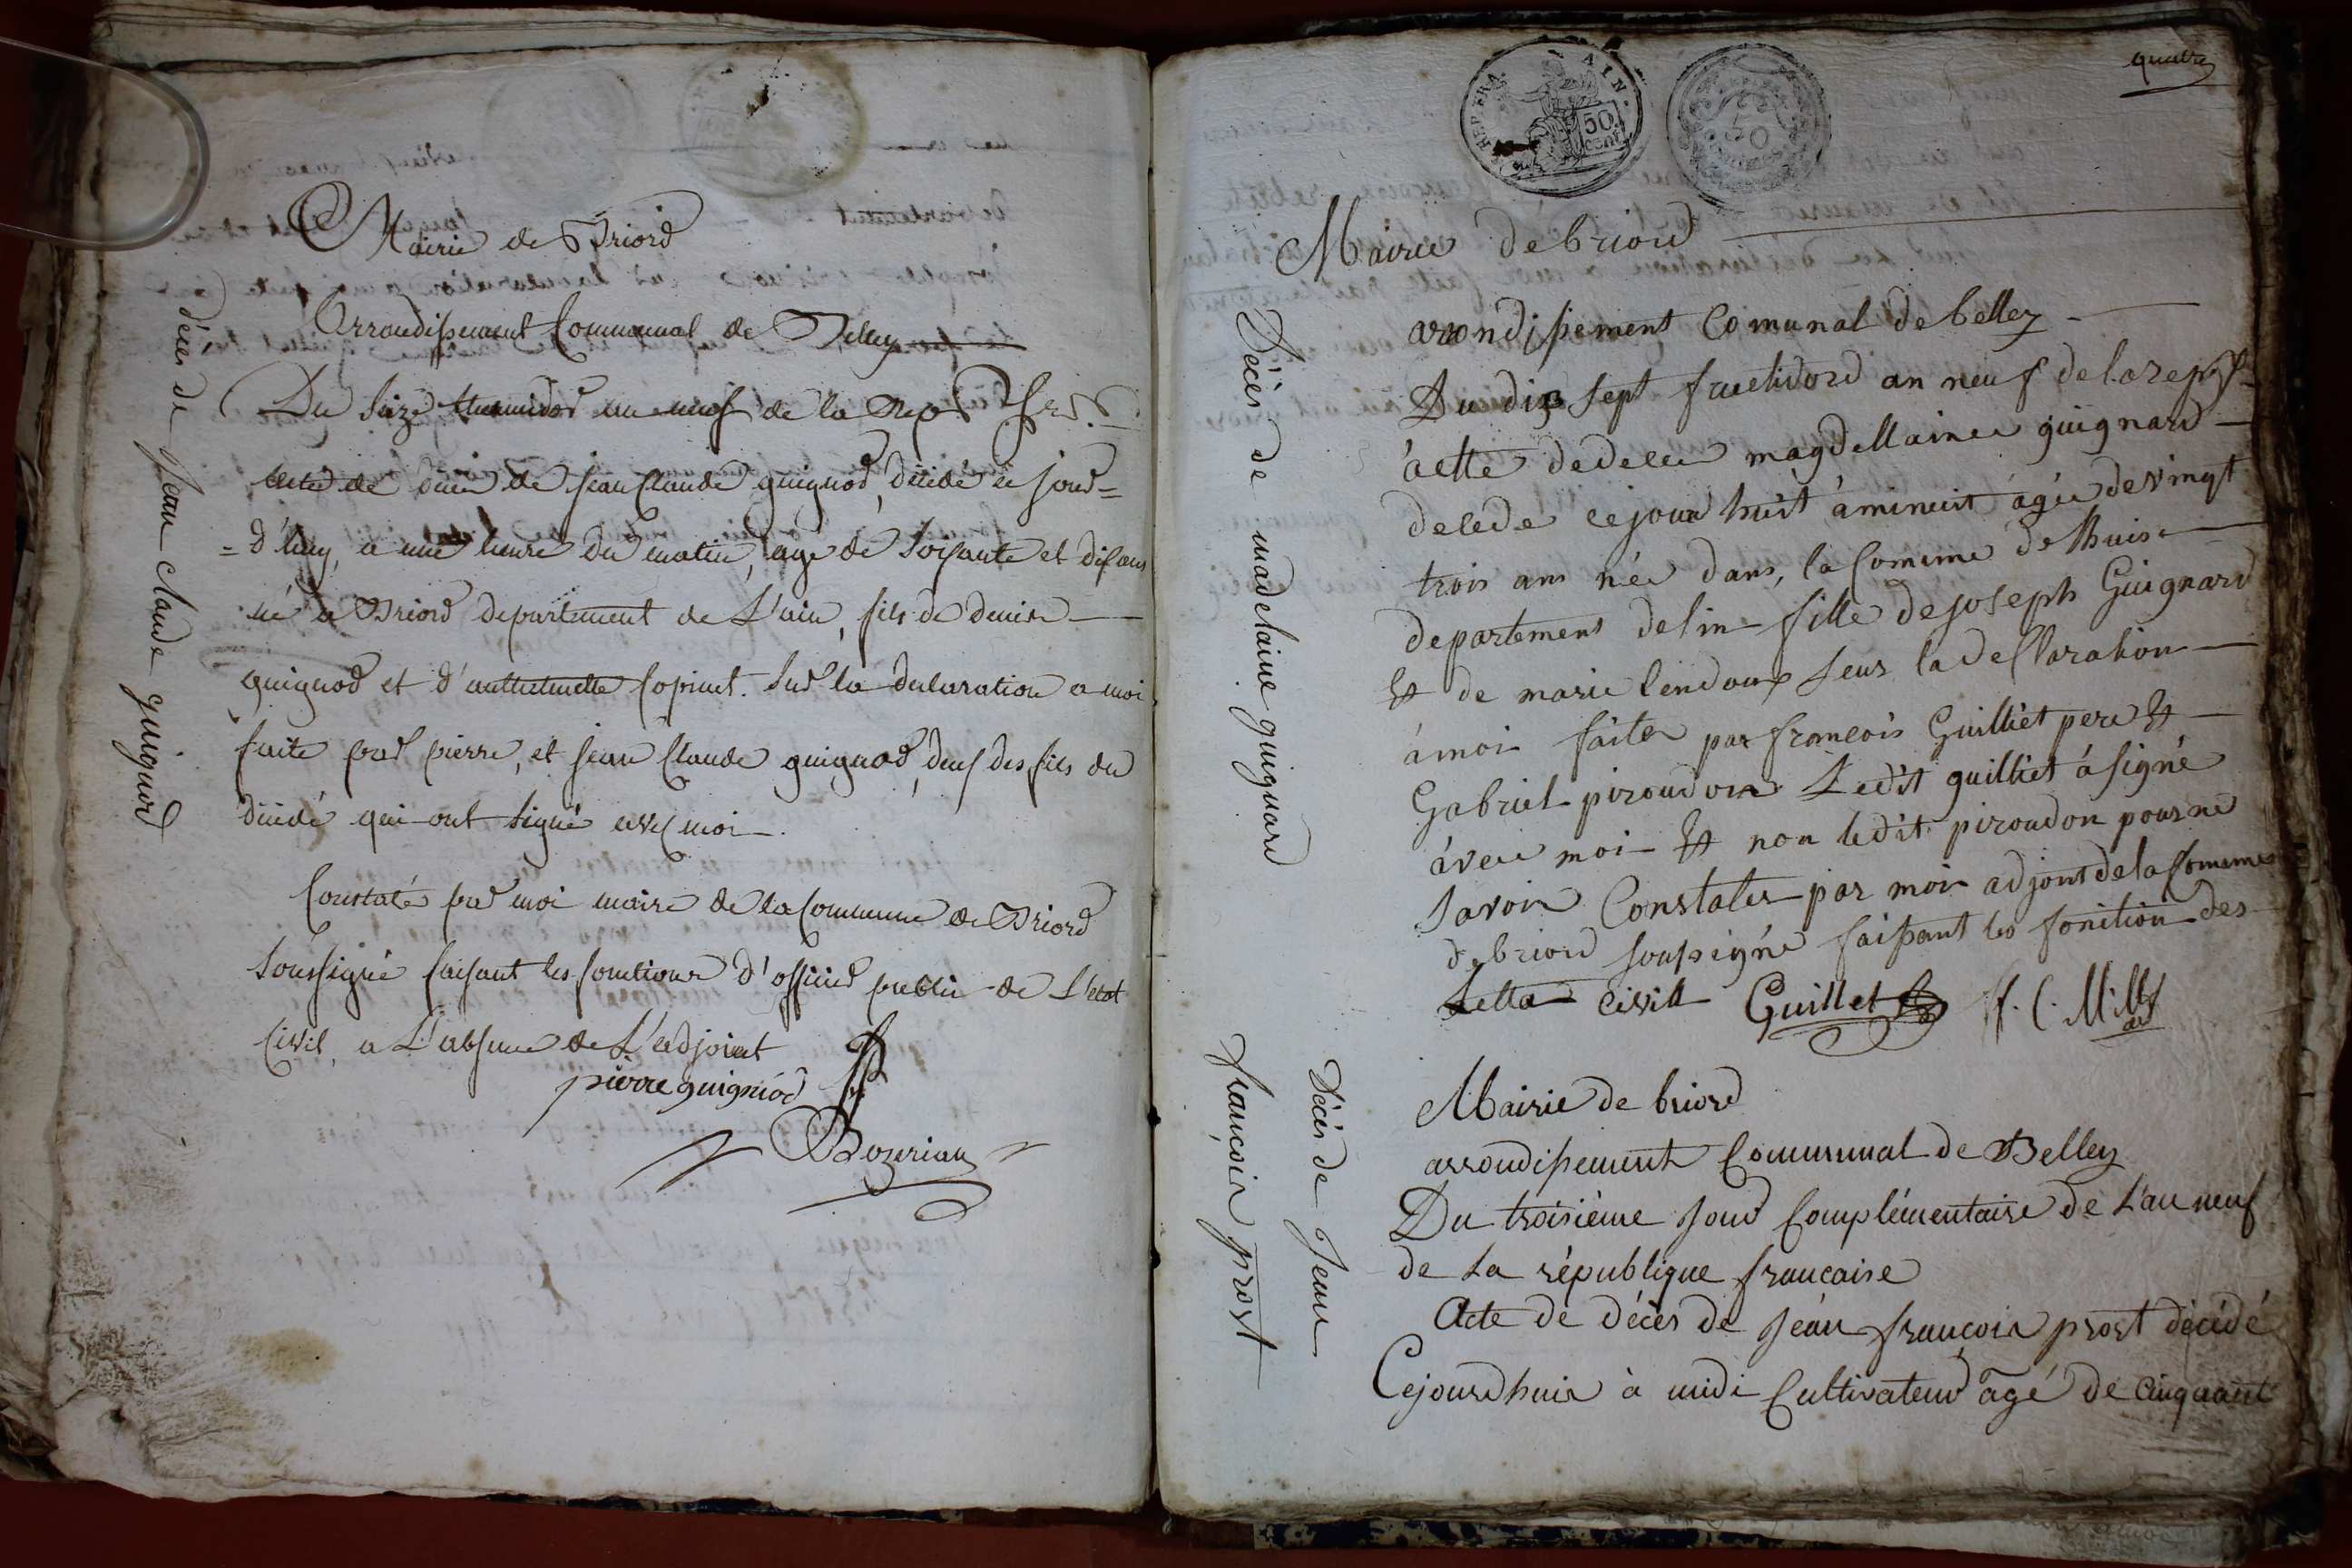 décès de Jean claude guignod
Mairie de Briord
Arrondissement Communal de Belley
Du Seize thermidor an neuf de la Rep. fr.
acte de décès de Jean Claude guignod, décédé ce jour=
=d'huy, a une heure du matin, agé de Soixante et dix ans
né a Briord departement de L'ain, fils de denis
guignod et d'anthelmette Copinet. Sur la declaration a moi
faite par pierre, et Jean Claude guignod, deux des fils du
décédé qui ont Signé avec moi.
Constaté par moi maire de la Commune de Briord
Soussigné faisant les fonctions d'officier public de L'etat
Civil, a L'absence de L'adjoint
pierre guigniod
Bozerian
quatre
REP. FRA.
AIN.
50
cent.
50
Décès de madelaine guignard
Mairie de briord
arondissement Comunal de belley
Du dix Sept fructidord an neuf de la rep. f.
actte de deces magdellaine guignard
decede ce jour huit à minuit agée de vingt
trois ans née dans, la Commune de Lhuis
departement de lin fille de joseph Guignard
Et de marie lendouz Seur la declaration
à moi faite par françois Guilliet pere Et
Gabriel piroudon Ledit guilliet à signé
àvec moi Et non ledit piroudon pour ne
Savoir Constater par moi adjont de la Commune
de briord soussigné faissant les fonction des
Letta civill Guillet f. C. Millet
adj
Décès de Jean
François prost
Mairie de briord
arrondissement Communal de Belley
Du troisième Jour Complémentaire de L'an neuf
de La république française
Acte de décès de Jean françois prost décédé
Cejourdhuis à midi Cultivateur agé de cinquante